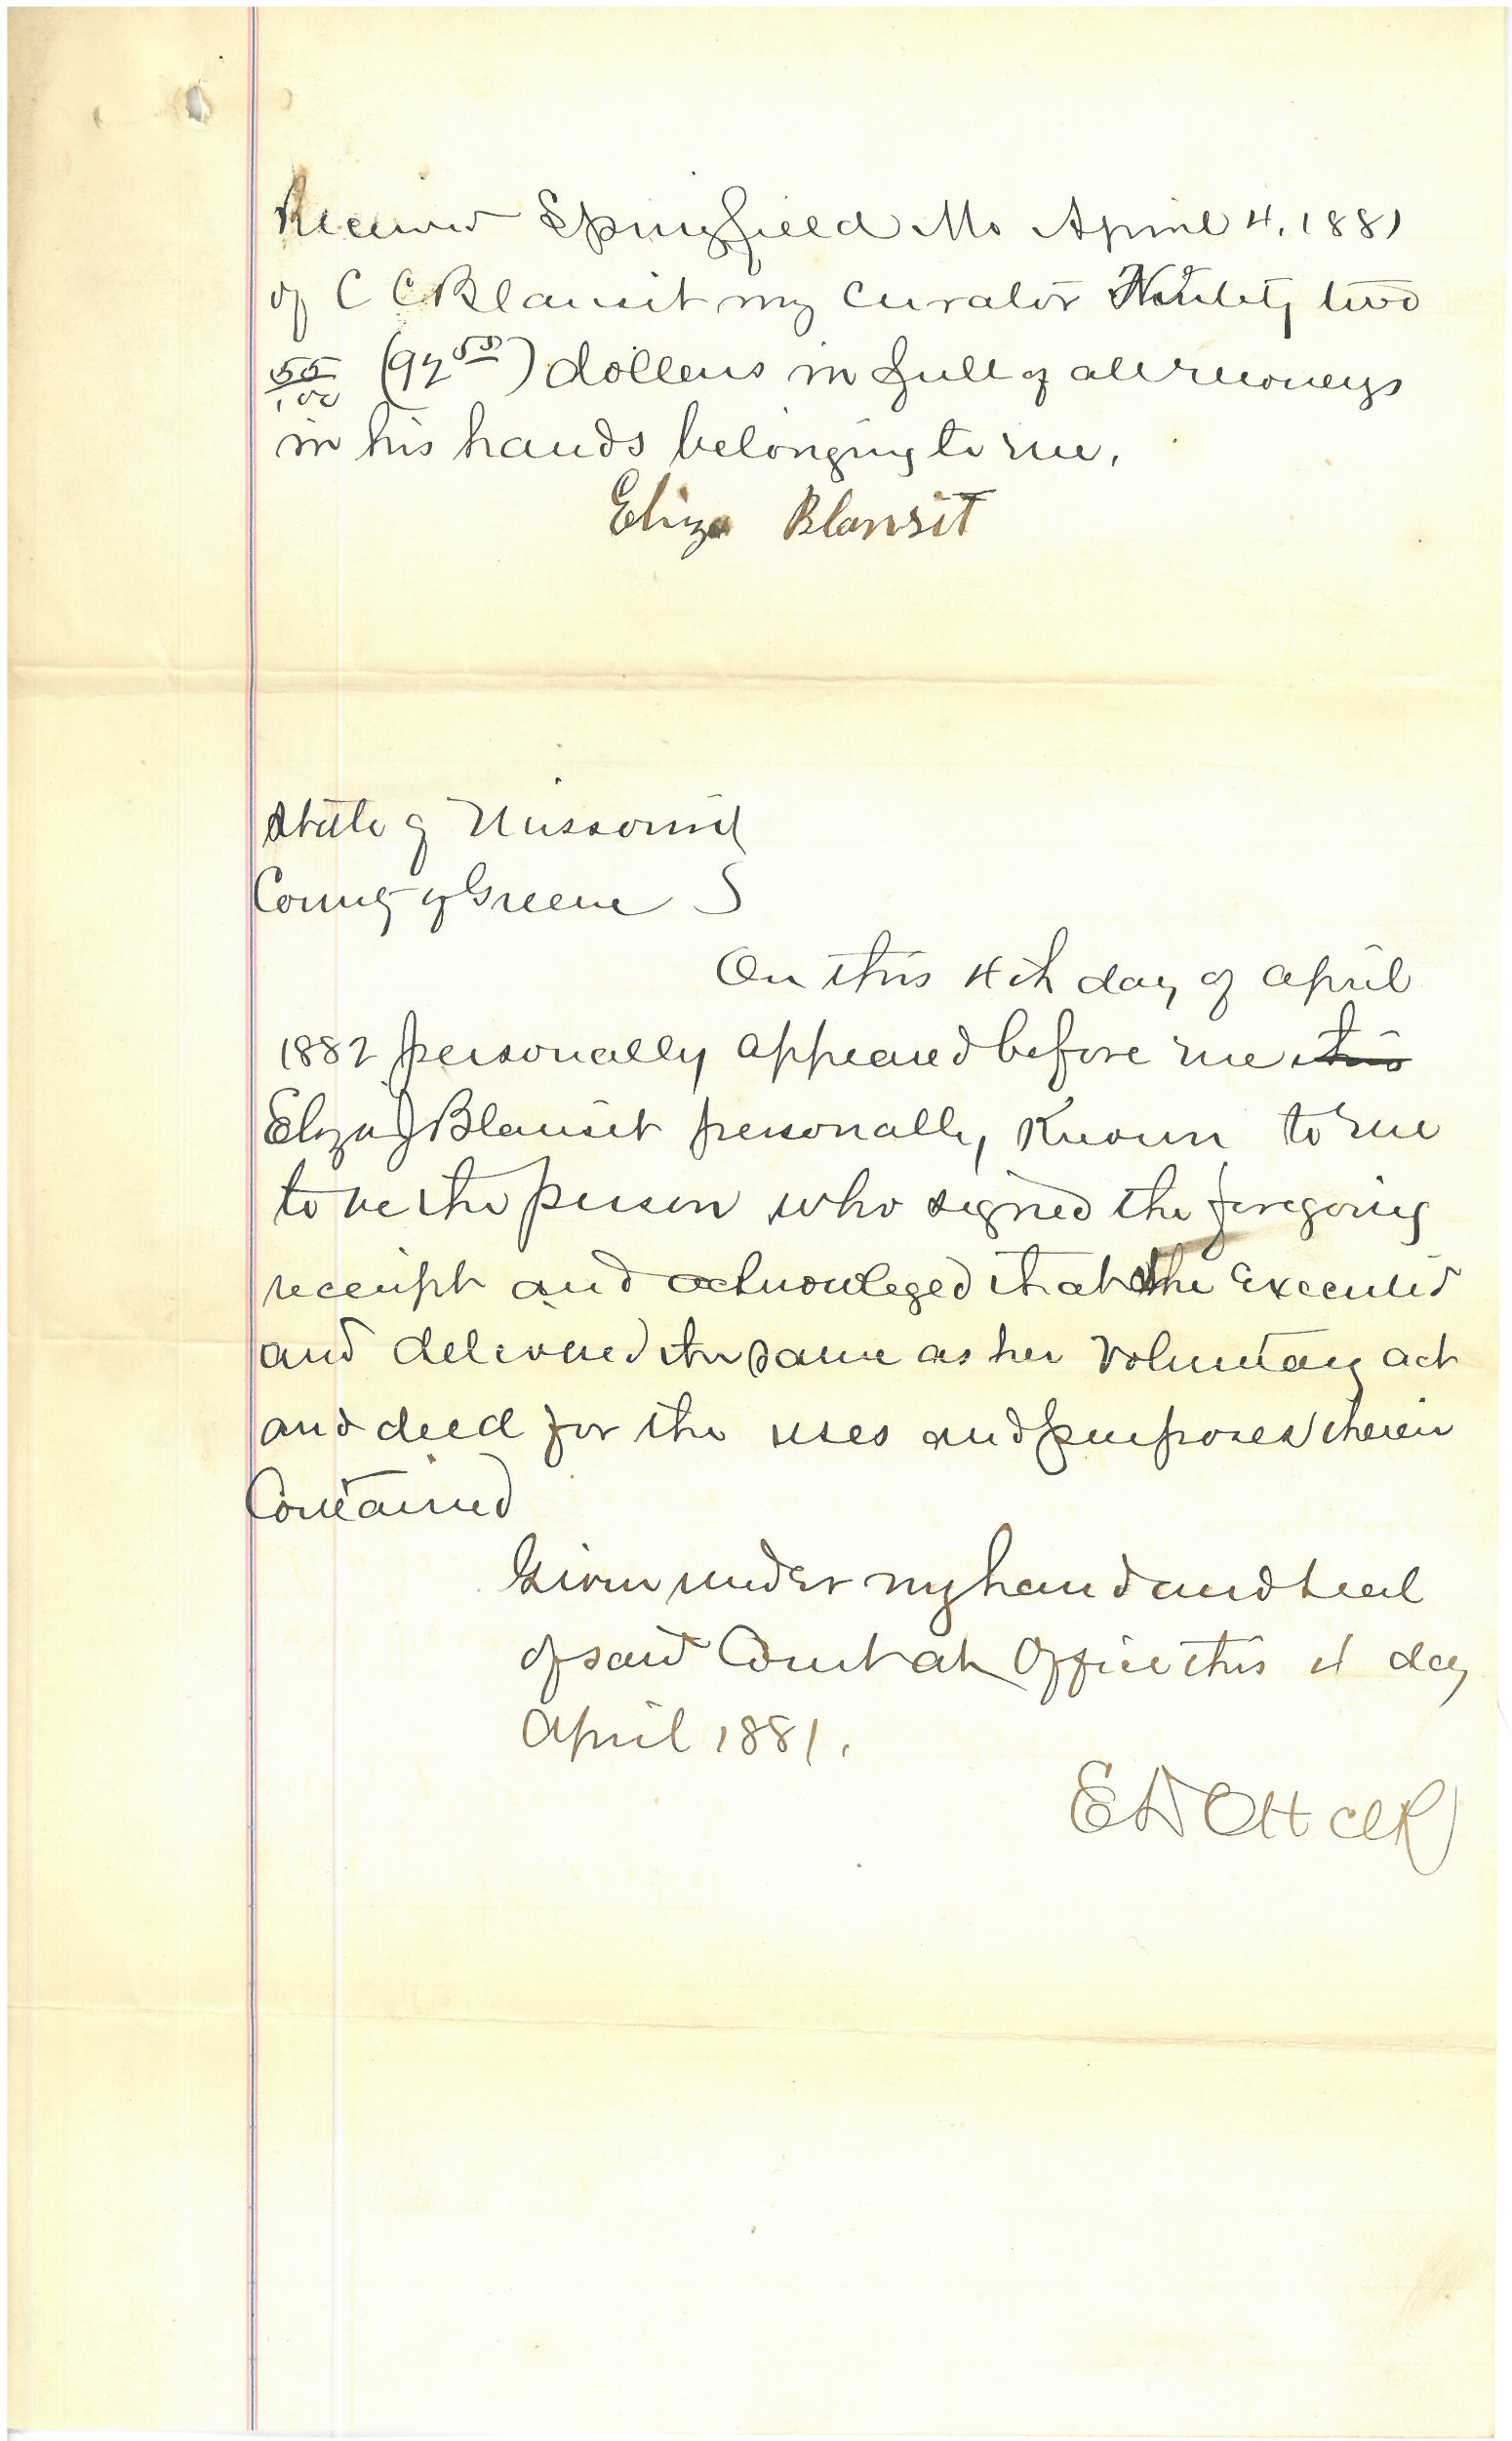 Received Springfield Mo April 4, 1881
of C C Blansit my curator Ninety two
55/100 (92 55) dollers in full of all moneys
in his hands belonging to me,
Eliza Blansit
State of Missouri
County of Greene S
On this 4th day of april
1882 personally appeared before me this
Eliza J Blansit personally Known to me
to be the person who signed the foregoing
receipt and acknowleged that she Executed
and delivered the same as her Voluntary act
and deed for the uses and purposes therein
Contained
Given under my hand and seal
of said Court at Office this 4 day
April 1881.
E D Ott Clk